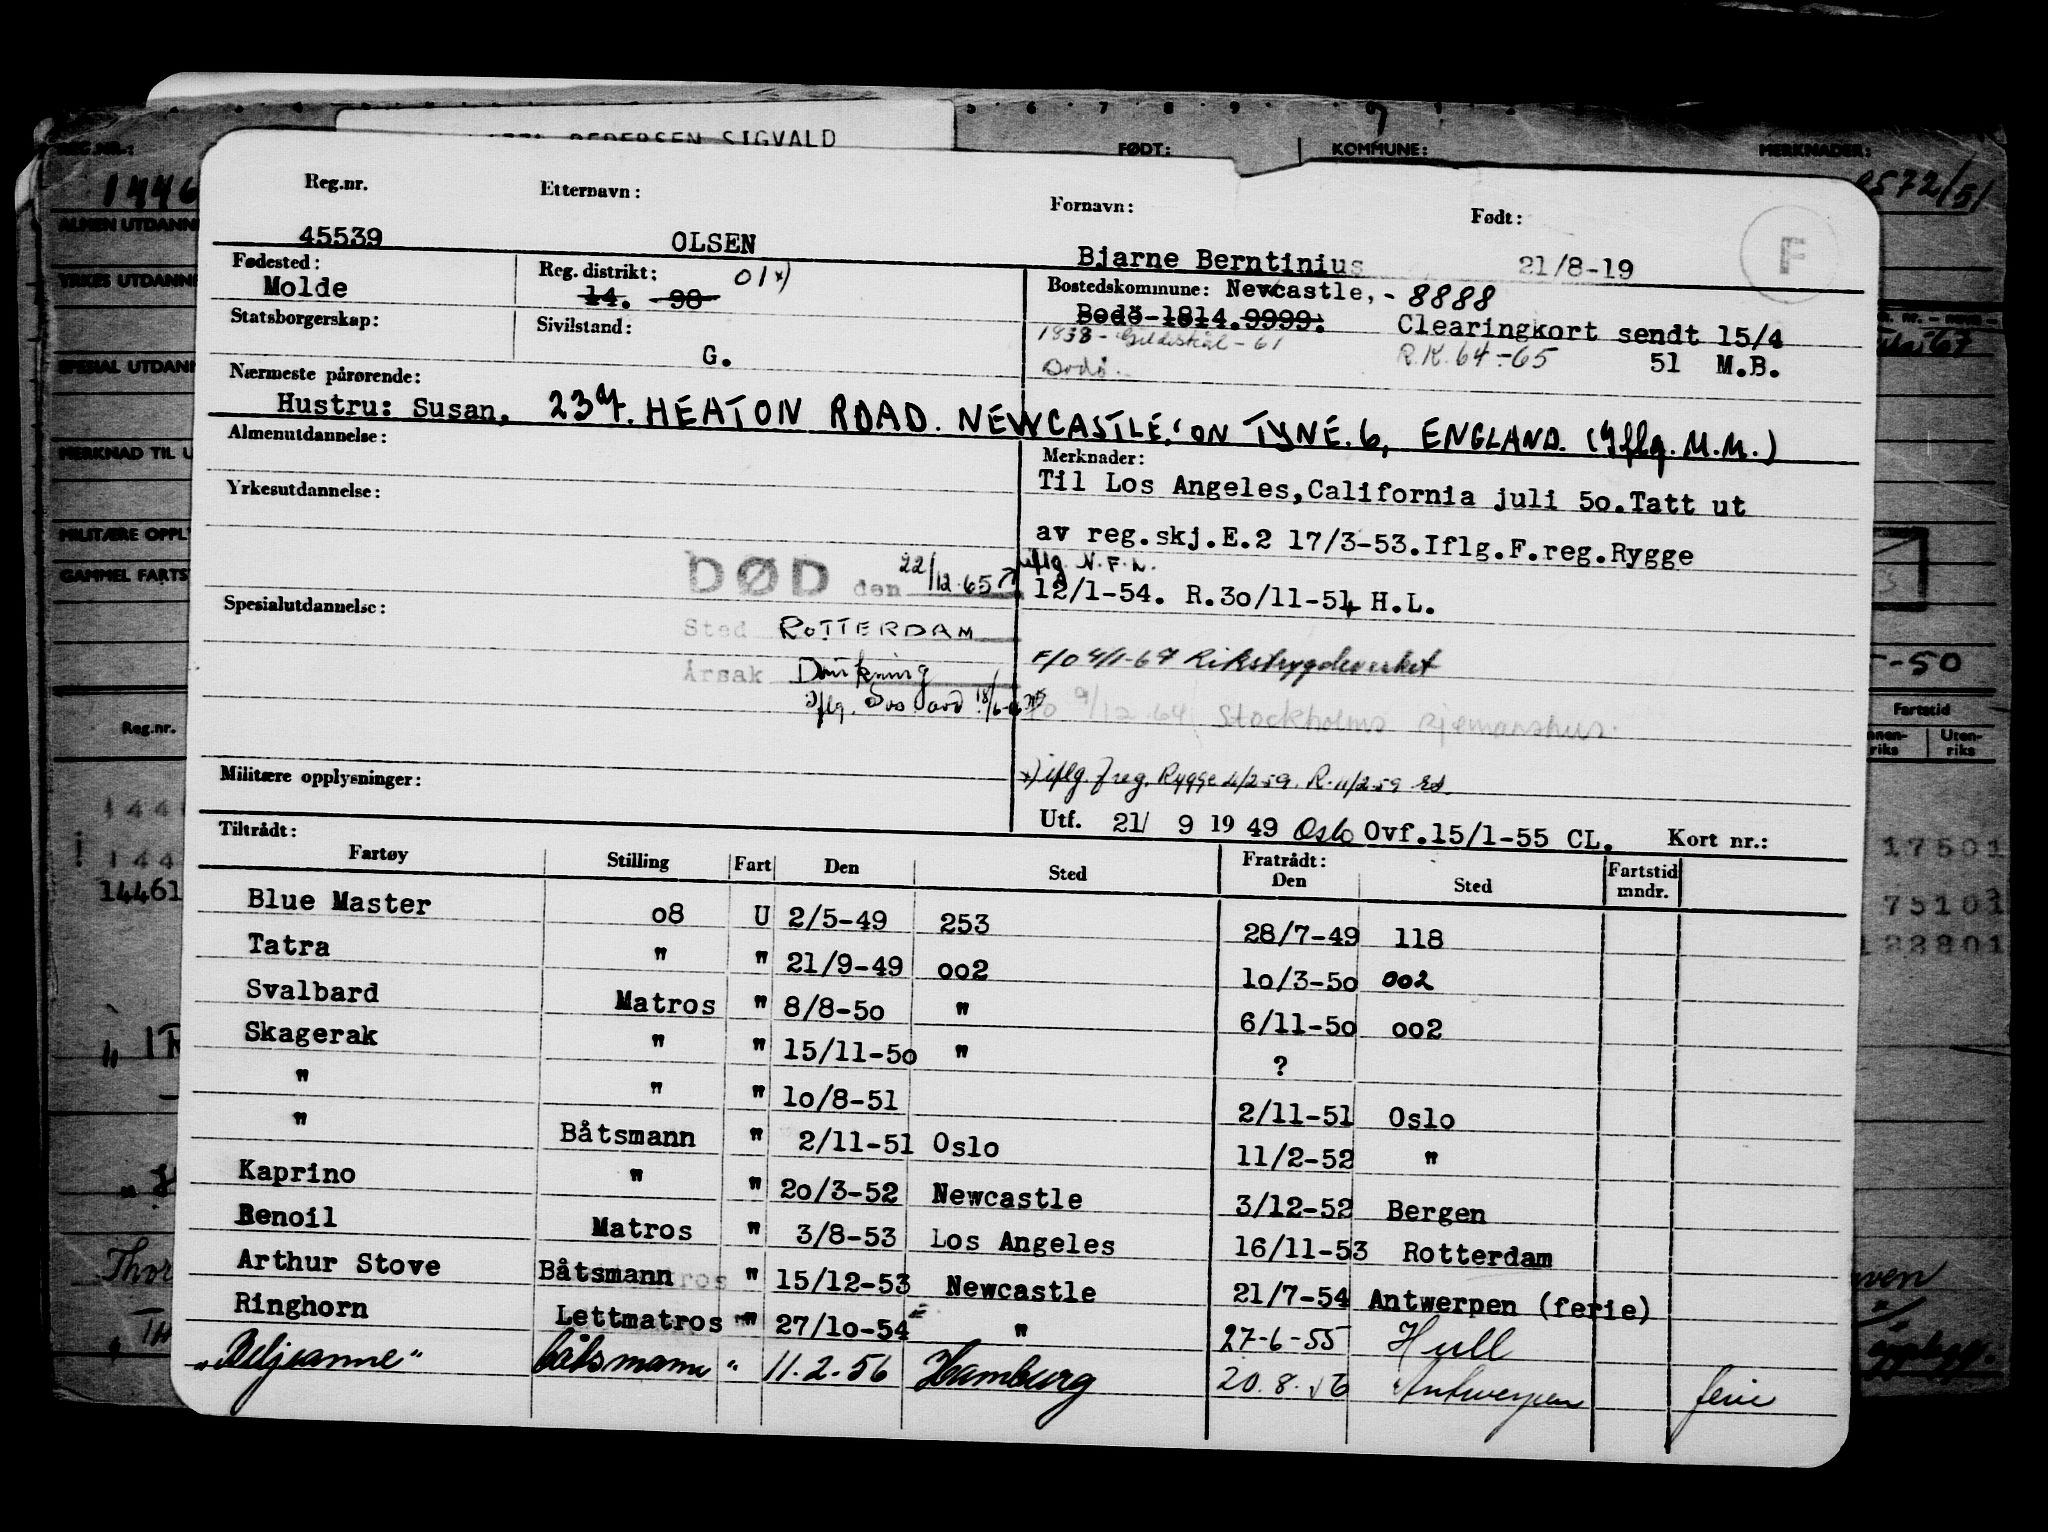 PEDERSEN SIGVALD
REG.NR.: FØDT: KOMMUNE: MERKNADER:
1446
572/51
ALMEN UTDANN
YRKES UTDANNE
SPESIAL UTDANN
MERKNAD TIL U
MILITÆRE OPPL
GAMMEL FARTS
Reg.nr.
14461
Reg.nr. Etternavn: Fornavn: Født:
45539 OLSEN Bjarne Berntinius 21/8-19 F
Fødested: Reg. distrikt: 01 x) Bostedskommune: Newcastle,- 8888
Molde 14. 98 Bodö-1814.9999. Clearingkort sendt 15/4
Statsborgerskap: Sivilstand: 1938 - Gildeskål - 61
G. Bodö. R.K. 64-65 51 M.B.
Nærmeste pårørende:
Hustru: Susan, 237. HEATON ROAD. NEWCASTLE, ON TYNE. 6, ENGLAND. (Iflg. M.M.)
Almenutdannelse: Merknader:
Til Los Angeles, California juli 5o. Tatt ut
Yrkesutdannelse:
av reg.skj.E.2 17/3-53. Iflg.F.reg.Rygge
DØD den 22/12 65 iflg. N.F.L.
12/1-54. R.3o/11-54 H.L.
Spesialutdannelse:
Sted ROTTERDAM
F/O 4/1-67 Rikstrygdeverket
Årsak Drukning
9/12 64 Stockholms sjømannshus.
Militære opplysninger:
x) iflg. F reg. Rygge 4/2-59. R. 11/2-59
Utf. 21/ 9 19 49 Oslo Ovf.15/1-55 CL. Kort nr.:
Tiltrådt: Fratrådt:
Fartøy Stilling Fart Den Sted Den Sted Fartstid mndr.
Blue Master o8 U 2/5-49 253 28/7-49 118
Tatra " " 21/9-49 oo2 1o/3-5o 002
Svalbard Matros " 8/8-5o " 6/11-5o oo2
Skagerak " " 15/11-5o " ?
" " " 1o/8-51 2/11-51 Oslo
" Båtsmann " 2/11-51 Oslo 11/2-52 "
Kaprino " " 2o/3-52 Newcastle 3/12-52 Bergen
Renoil Matros " 3/8-53 Los Angeles 16/11-53 Rotterdam
Arthur Stove Båtsmann " 15/12-53 Newcastle 21/7-54 Antwerpen (ferie)
Ringhorn Lettmatros " 27/1o-54 " 27-6-55 Hull
"Beljeanne" båtsmann " 11.2.56 Hamburg 20.8.56 Antwerpen ferie
5-50
Fartstid
Uten-
riks riks
17501
75101